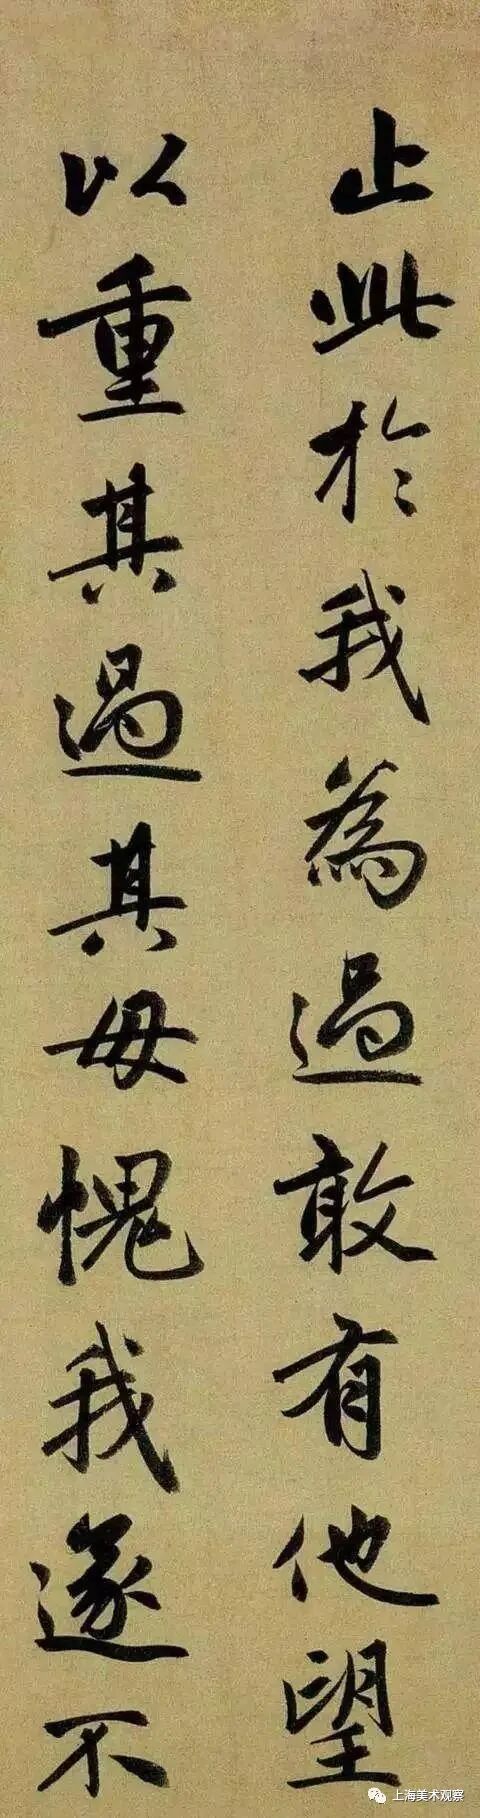 止此於我為過敢有他望
以重其過其母愧我遂不
上海美术观察